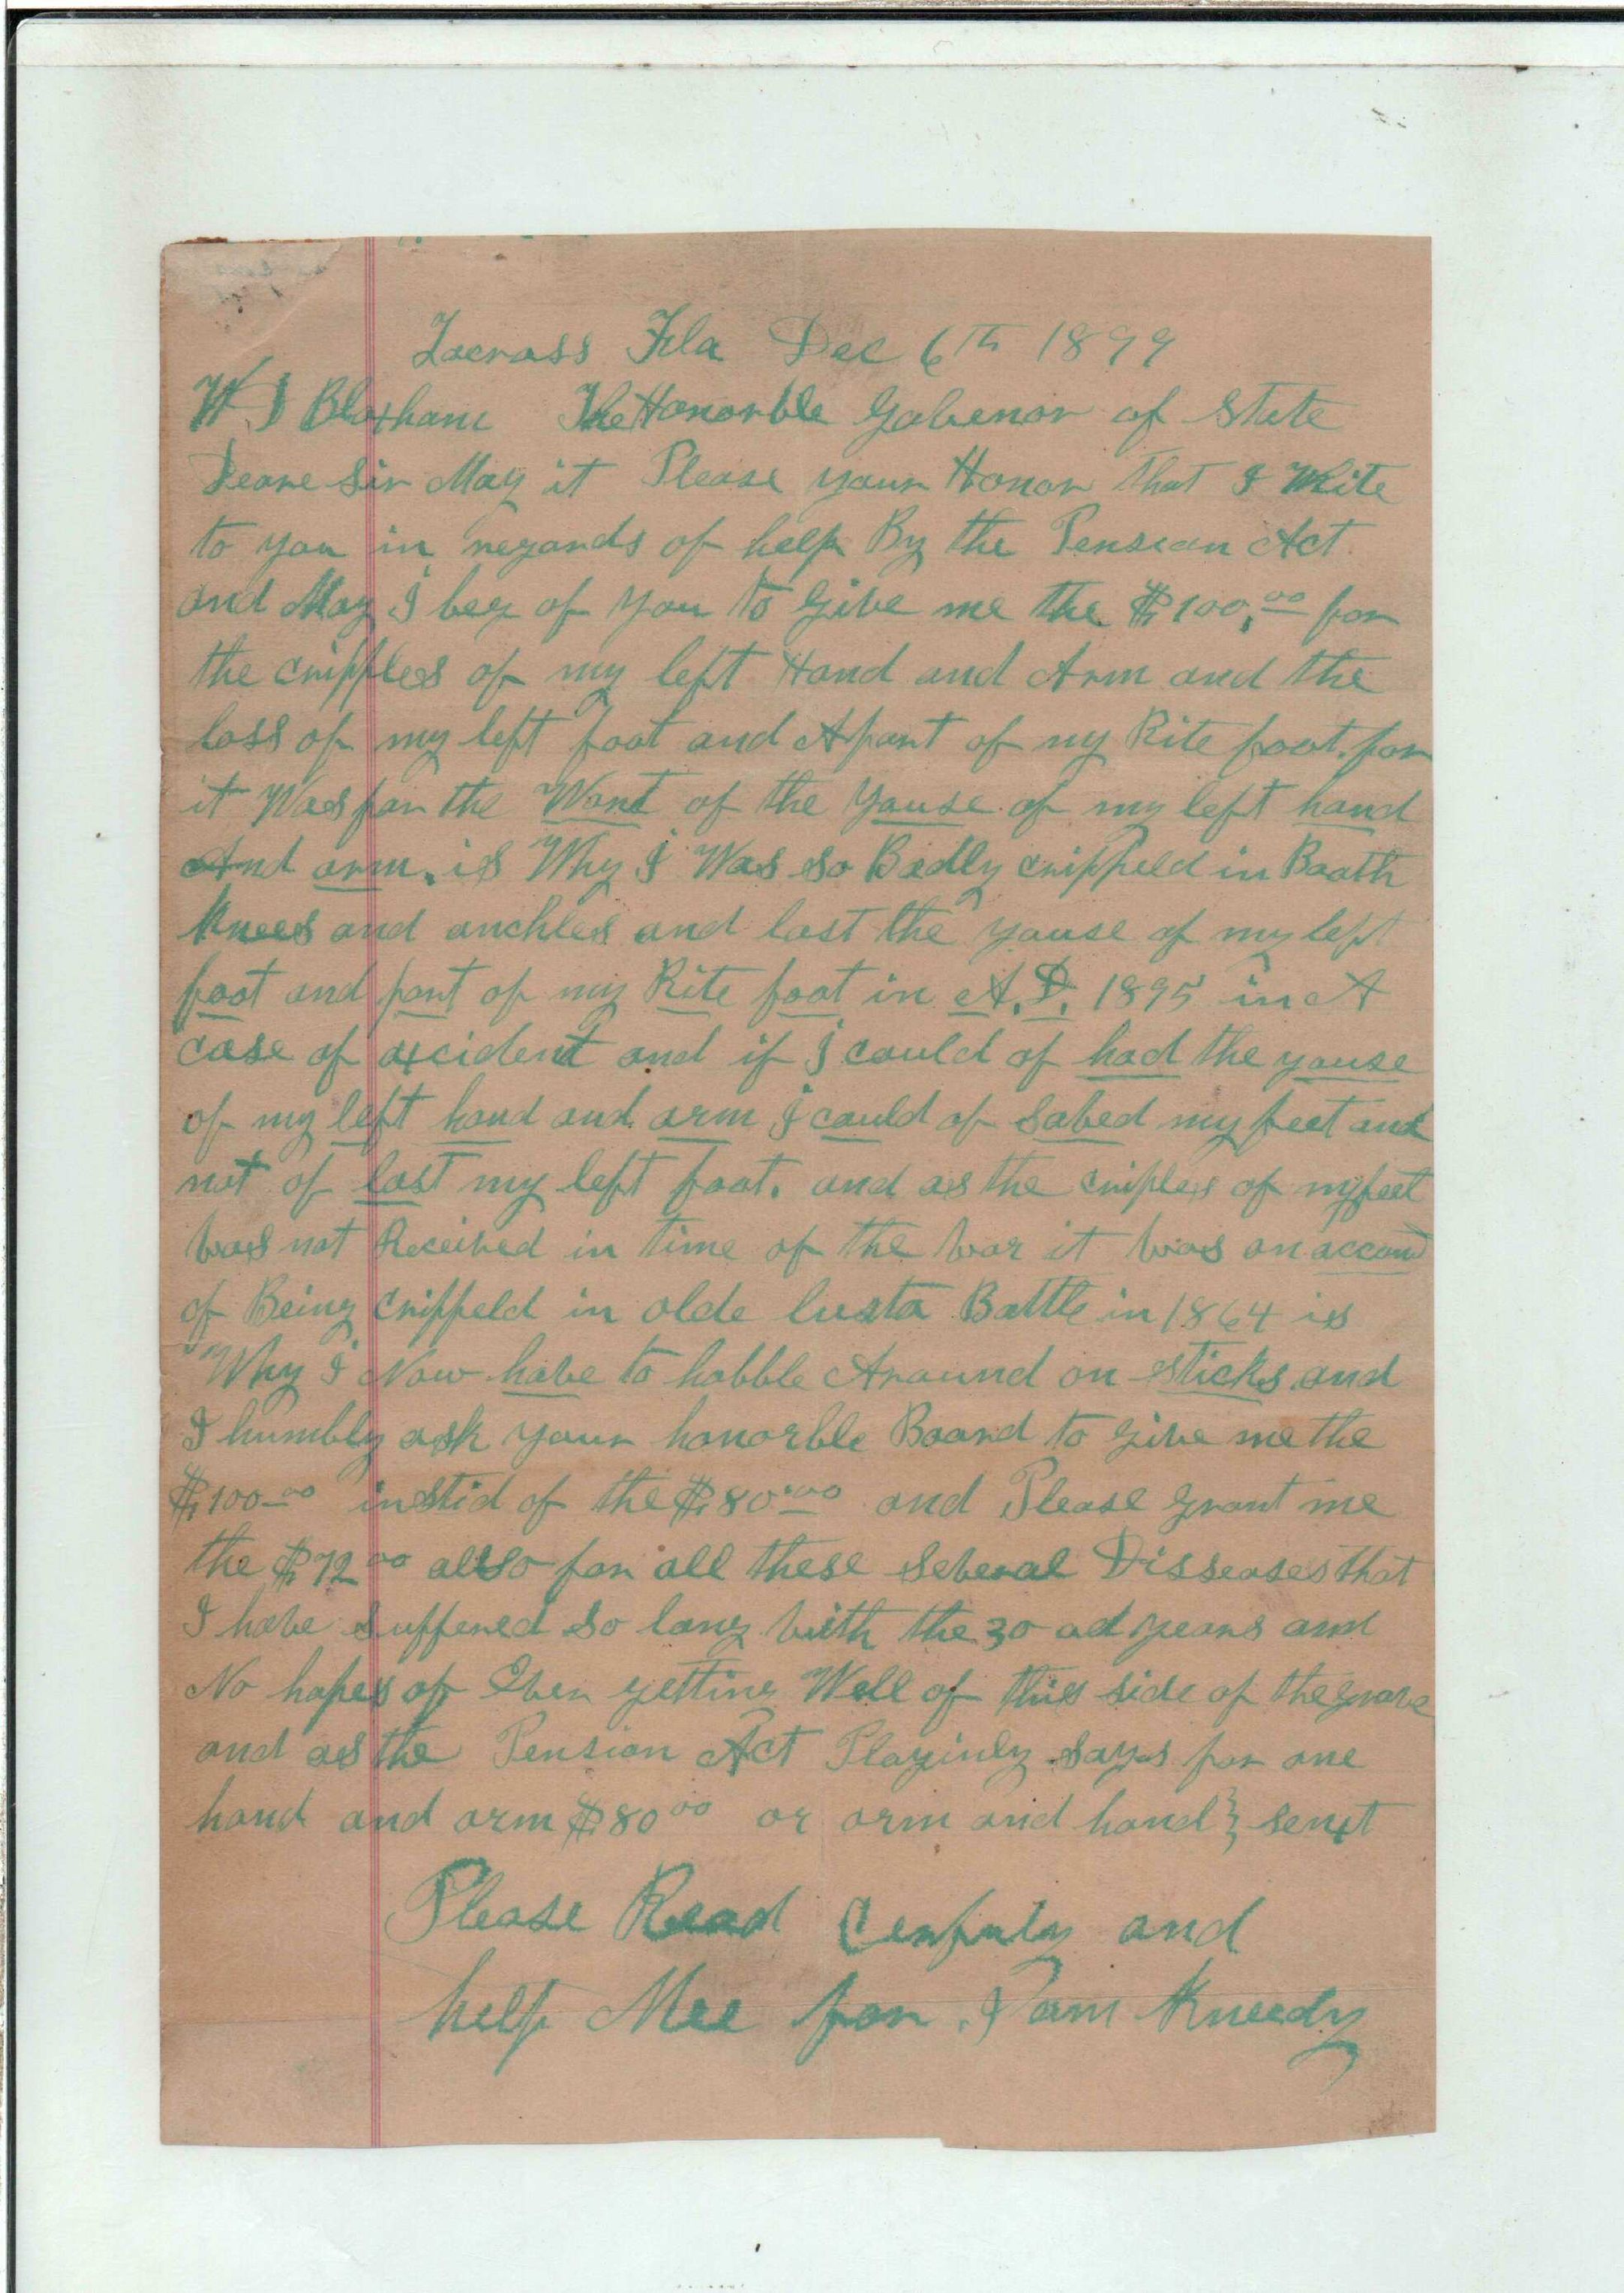 Lacrass Fla Dec 6th 1899
W D Bloxham The Honorble Gabenor of State
Deare Sir May it Please your Honor that I Write
to you in regards of help By the Pension Act
and May I beg of you to give me the $100.00 for
the cripples of my left Hand and Arm and the
loss of my left foot and A part of my Rite foot. for
it Was for the Want of the yause of my left hand
And arm. is Why I Was so Badly crippeld in Boath
Knees and anchles and lost the yause of my left
foot and part of my Rite foot in A.D. 1895 in A
case of axcident and if I could of had the yause
of my left hand and arm I could of sabed my feet and
not of lost my left foot. and as the criples of my feet
was not Received in time of the war it was on accound
of Being crippeld in olde lusta Battle in 1864 is
Why I Now habe to hobble Around on sticks and
I humbly ask your honorble Board to give me the
$100.00 instid of the $80.00 and Please grant me
the $72.00 allso for all these seberal Disseases that
I habe suffered so long with the 30 od years and
No hopes of Eber getting Well of this side of the grabe
and as the Pension Act Playinly says for one
hand and arm $80.00 or arm and hand} senst
Please Read Cerfuly and
help Mee for I am Kneedy